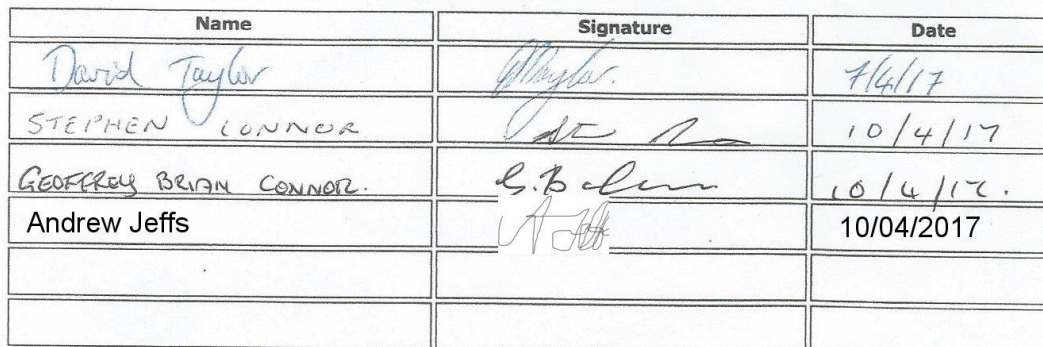 Name Signature Date
David Taylor 7/4/17
STEPHEN CONNOR 10/4/17
GEOFFREY BRIAN CONNOR. 10/4/17.
Andrew Jeffs 10/04/2017